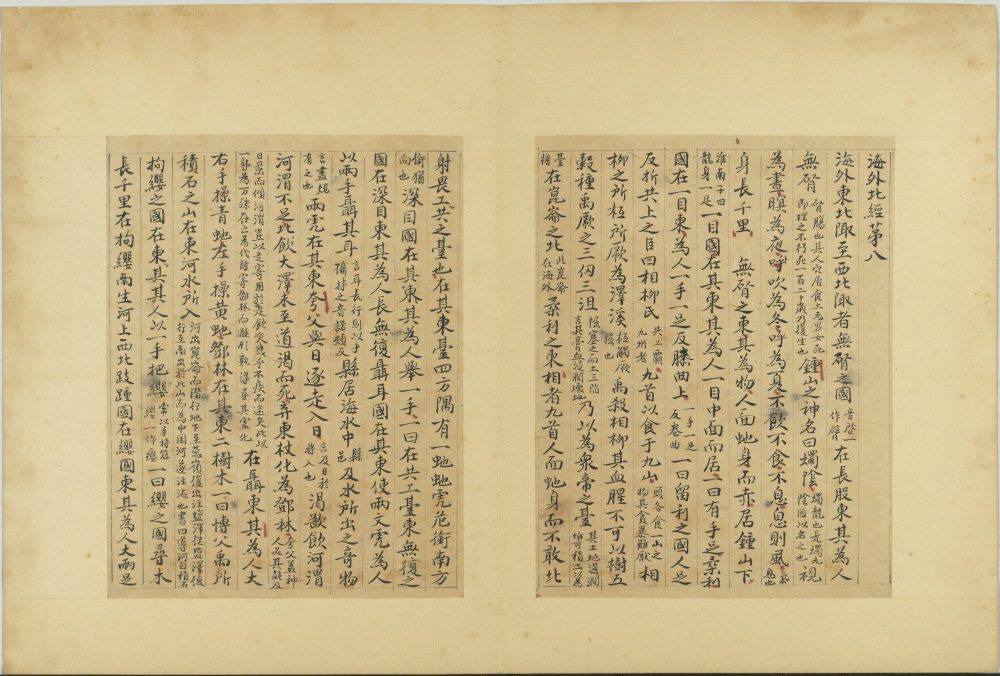 海外北經第八
海外東北陬至西北陬者無䏿之國音啓一作䏿在長股東其為人
無䏿䏿膓也其人穴居食土无男女死即埋之不朽死一百二十歲乃復生也鍾山之神名曰燭陰燭龍也是燭九陰因以名之也視
為晝瞑為夜吹為冬呼為夏不飲不食不息息則風氣息也
身長千里 無䏿之東其為物人面虵身而赤居鍾山下
淮南子曰龍身一足一目國在其東其為人一目中面而居一曰有手足柔利
國在一目東為人一手一足反膝曲上一手一足反卷曲一曰留利之國人足
反折共工之臣曰相柳氏共工霸九州者九首以食于九山頭各食一山之物其貪暴難厭相
柳之所柢所厥為澤溪柢觸厥掘也禹殺相柳其血腥不可以樹五
穀種禹厥之三仞三沮掘塞之而土三陷言其膏血浸潤壞地乃以為衆帝之臺其工地溼潤唯可積土以為
臺在崑崙之北北崑崙在海外柔利之東相者九首人面虵身而不敢北
射畏工共之臺也在其東臺四方隅有一虵虵虎危衝南方
衝猶向也深目國在其東其為人舉一手一曰在共工臺東無復之
國在深目東其為人長無復聶耳國在其東使兩文虎為人
以兩手聶其耳言耳長行則以手攝持之音諾頰反縣居海水中縣邑及水所出之奇物
言盡規有之也兩虎在其東夸父與日逐走入日言及日於將入也渴欲飲河渭
河渭不足北飲大澤未至道渴而死弃東杖化為鄧林夸父蓋神人也其能及
日景而傾河渭豈以走在聶東其為人大
右手操青虵左手操黄虵鄧林在其東二樹木一曰博父禹所
積石之山在東河水所入河出崑崙而潛行地下至葱嶺復出注鹽澤從鹽澤復行至南出於此山而為中國河遂注海也書曰導河自積石
拘纓之國在東其其人以一手把纓常以手持冠纓纓一作癭一曰纓之國尋木
長千里在拘纓南生河上西北跂踵國在纓國東其為人大兩足